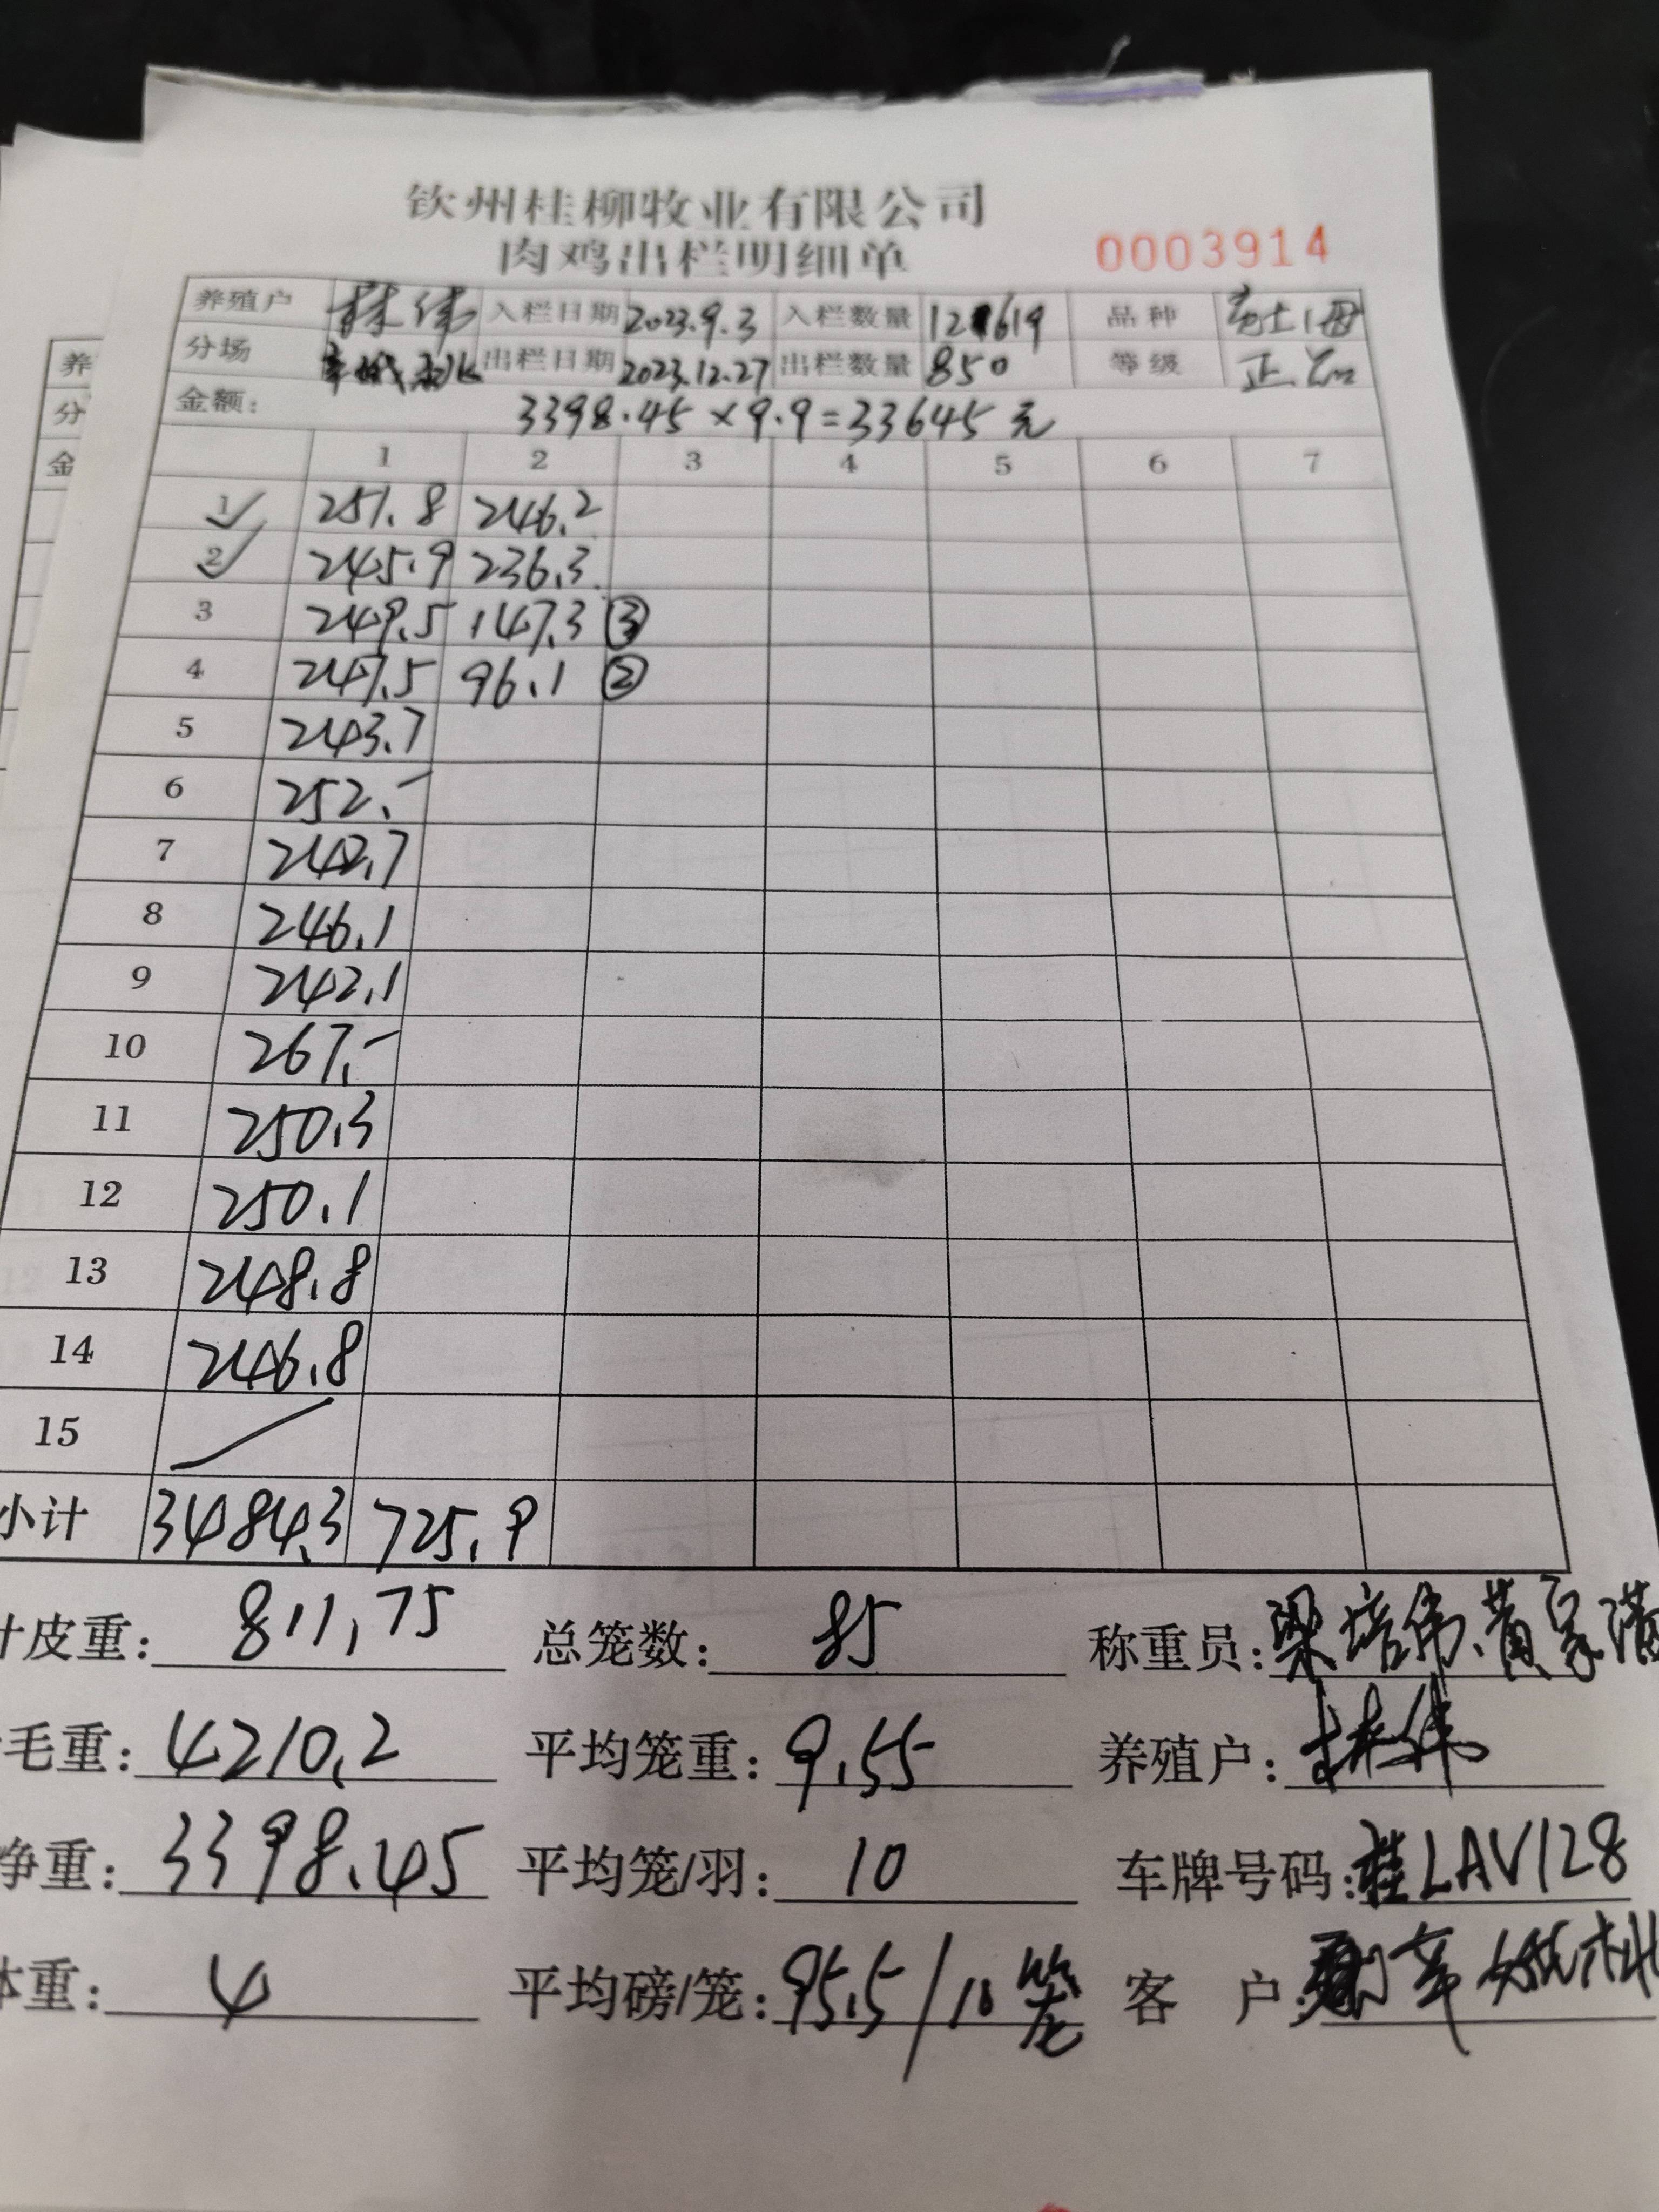 钦州桂柳牧业有限公司
肉鸡出栏明细单 0003914
养殖户 林伟 入栏日期 2023.9.3 入栏数量 12619 品种
分场 出栏日期 2023.12.27 出栏数量 850 等级 正品
金额: 3398.45×9.9=33645元
1 2 3 4 5 6 7
1 251.8 246.2
2 245.9 236.3
3 249.5 147.3 ③
4 247.5 96.1 ②
5 243.7
6 252.-
7 242.7
8 246.1
9 242.1
10 267.-
11 250.3
12 250.1
13 248.8
14 246.8
15
小计 3484.3 725.9
计皮重: 811.75 总笼数: 85 称重员: 梁培伟、黄
毛重: 4210.2 平均笼重: 9.55 养殖户: 林伟
净重: 3398.45 平均笼/羽: 10 车牌号码: 桂LAV128
体重: 4 平均磅/笼: 95.5/10笼 客 户:
养
分
金